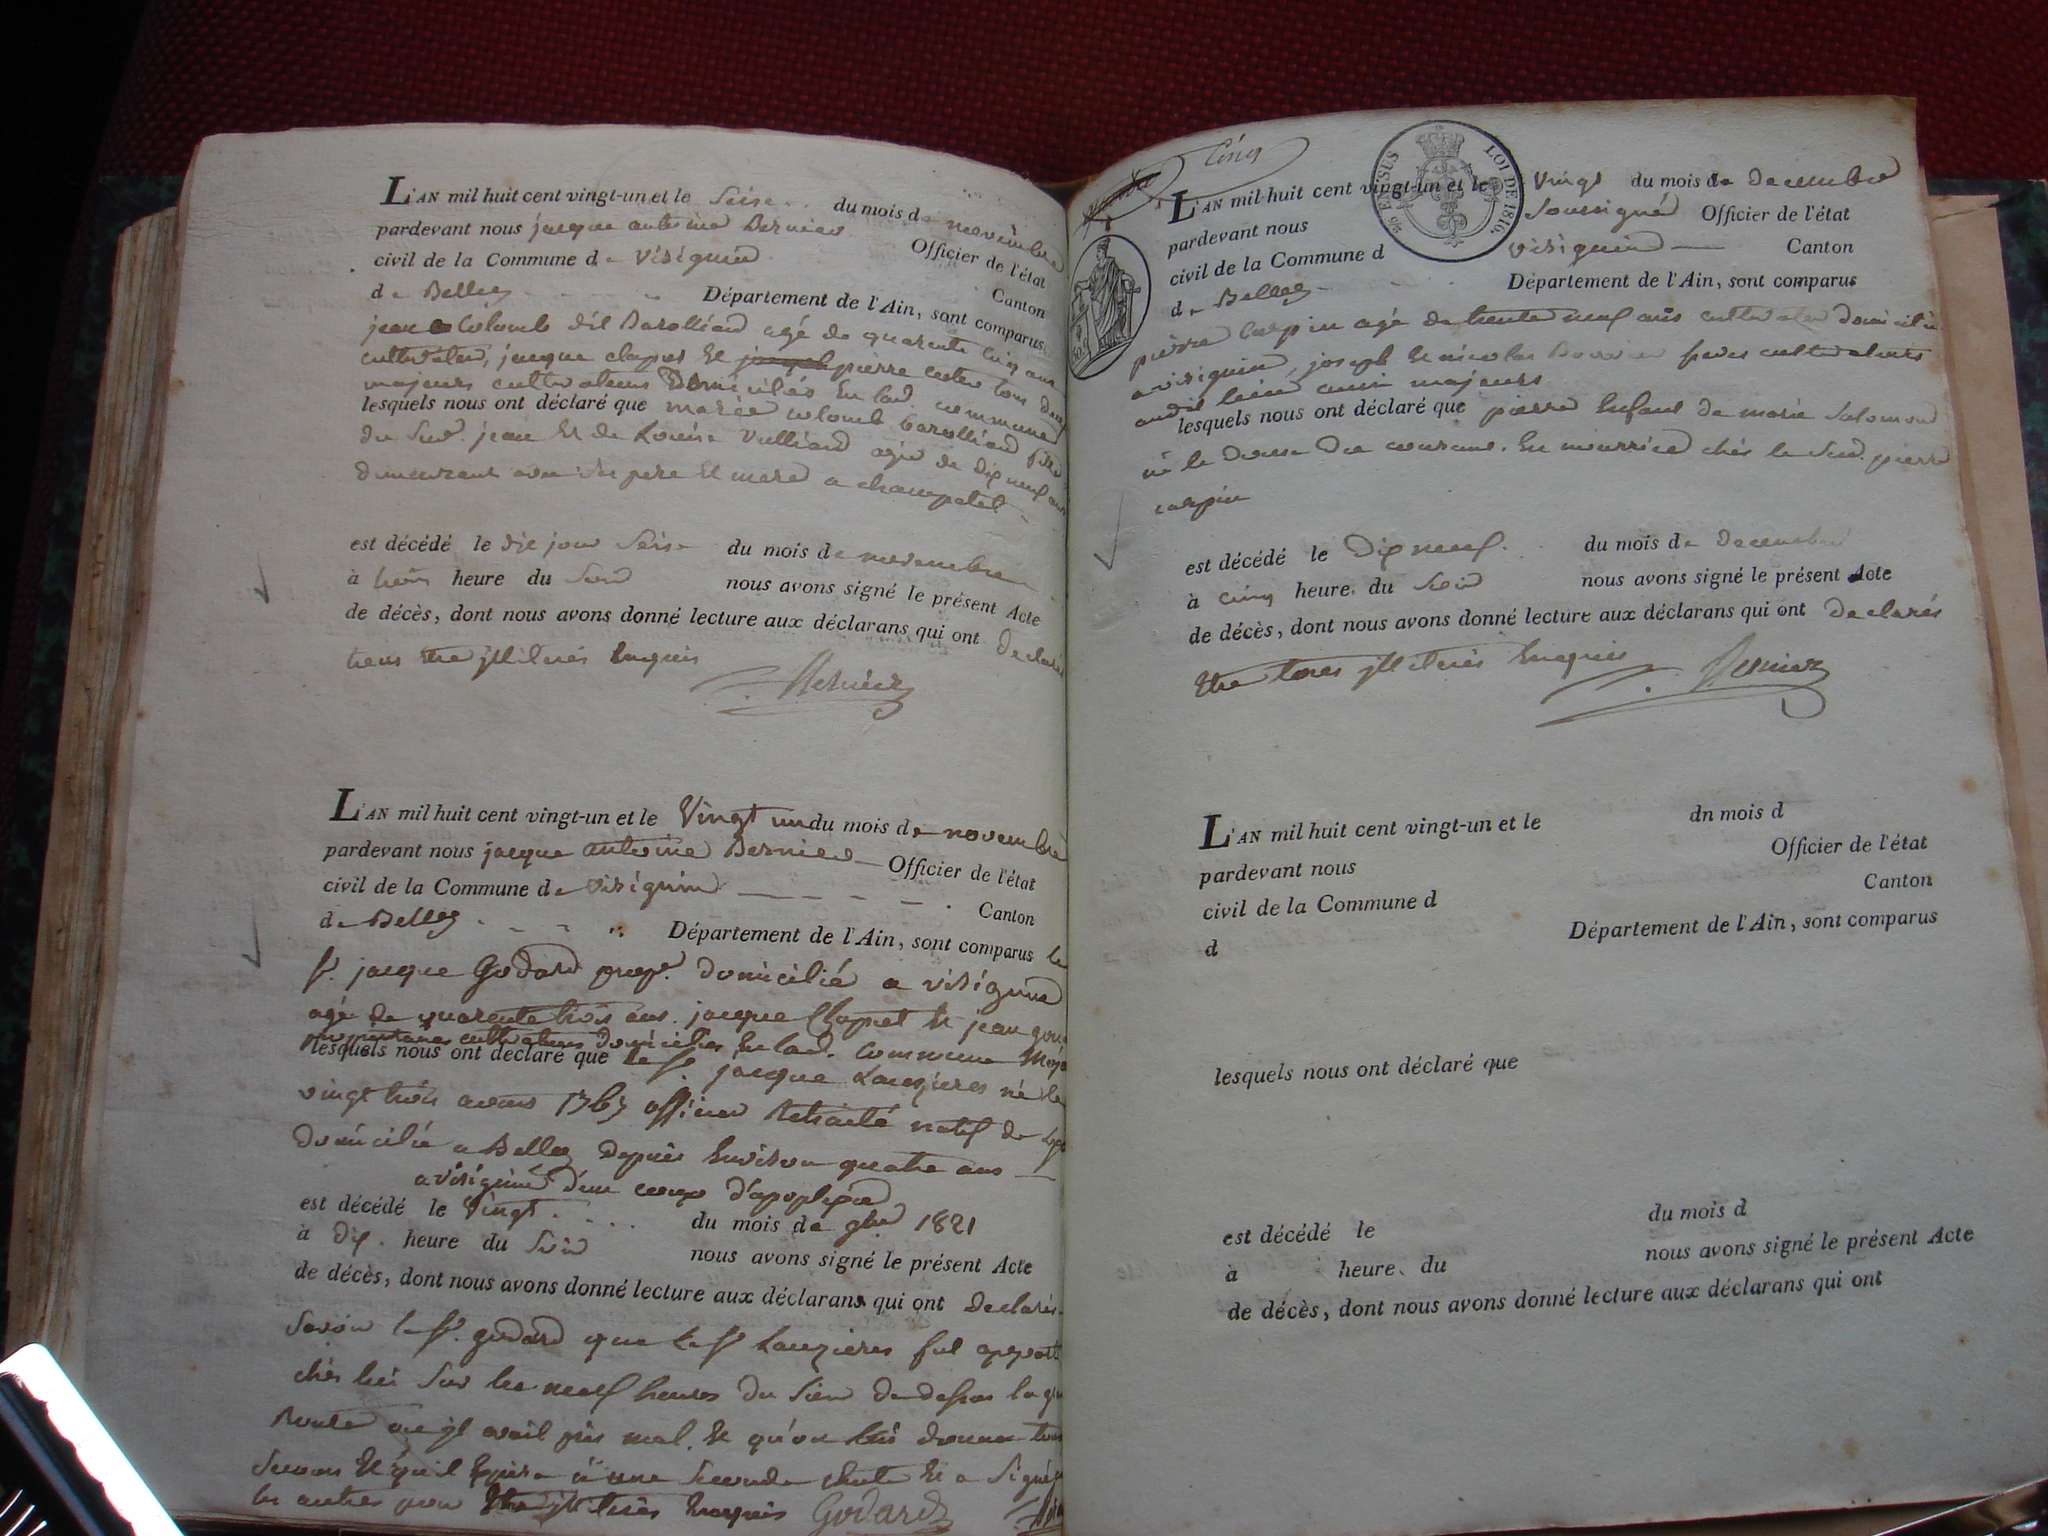 L'AN mil huit cent vingt-un et le Seise du mois de novembre
pardevant nous jacque antoine Bernier Officier de l'état
civil de la Commune de Virignin Canton
de Belley Département de l'Ain, sont comparus
jean Colomb dit Barolliard agé de quarente cinq ans
cultivateur, jacque clapet et pierre tous deux
majeurs cultivateurs Domiciliés En lad. commune
lesquels nous ont déclaré que marie colomb barolliard fille
du Sud. jean Et de Louise Vulliard agée de dix neuf ans
demeurant avec Ses pere Et mere a champetel
est décédé le dit jour Seise du mois de novembre
à heure du Soir nous avons signé le présent Acte
de décès, dont nous avons donné lecture aux déclarans qui ont Declaré
tous Etre jllitérés Enquis
Bernier
L'AN mil huit cent vingt-un et le Vingt un du mois de novembre
pardevant nous jacque antoine Bernier Officier de l'état
civil de la Commune de Virignin Canton
de Belley Département de l'Ain, sont comparus le
Sr. jacque Godard propre. domicilié a virignin
agé de quarente trois ans. jacque Clapet Et jean
propriétaires cultivateurs domiciliés En lad. Commune
lesquels nous ont déclaré que le Sr. jacque Lauzieres né le
vingt trois 1767 officier Retraité natif de
Domicilié a Belley Depuis Environ quatre ans
a virignin d'un coup d'apoplexie
est décédé le Vingt du mois de 9bre 1821
à Dix heure du Soir nous avons signé le présent Acte
de décès, dont nous avons donné lecture aux déclarans qui ont Declarés
Savoir le Sr. godard que le Sr Lauzieres fut apporté
chés lui Sur les neuf heures du Soir de dessus la
Route ou jl avait pris mal. Et qu'on lui donna tous
Secours Et qu'il Expira à une Seconde chute Et a Signé
les autres pour Etre jllitérés Enquis Godard
Cinq
96 EN SUS LOI DE 1816.
L'AN mil huit cent vingt-un et le Vingt du mois de decembre
pardevant nous Soussigné Officier de l'état
civil de la Commune d virignin Canton
de Belley Département de l'Ain, sont comparus
pierre Carpin agé de trente neuf ans cultivateur domicilié
a virignin, joseph Et nicolas freres cultivateurs
audit lieu aussi majeurs
lesquels nous ont déclaré que pierre Enfant de marie Salomond
né le Douse Du courant. En nourrice chés le Sud. pierre
carpin
est décédé le Dix neuf. du mois de decembre
à cinq heure du Soir nous avons signé le présent Acte
de décès, dont nous avons donné lecture aux déclarans qui ont Declarés
Etre tous jllitérés Enquis Bernier
L'AN mil huit cent vingt-un et le dn mois d
pardevant nous Officier de l'état
civil de la Commune d Canton
d Département de l'Ain, sont comparus
lesquels nous ont déclaré que
est décédé le du mois d
à heure du nous avons signé le présent Acte
de décès, dont nous avons donné lecture aux déclarans qui ont